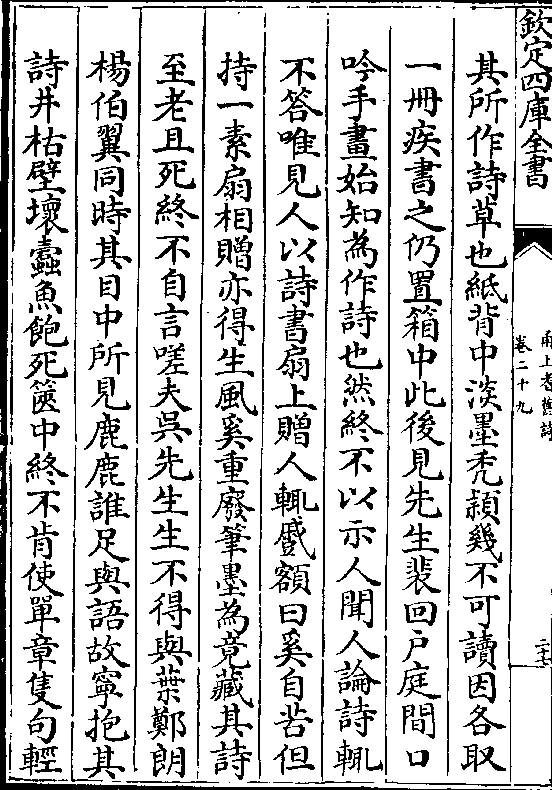 欽定四庫全書
甬上耆舊詩
卷二十九
二十七
其所作詩草也紙背中淡墨禿頴幾不可讀因各取
一冊疾書之仍置箱中此後見先生裴回户庭間口
吟手畫始知為作詩也然終不以示人聞人論詩輒
不答唯見人以詩書扇上贈人輒蹙額曰奚自苦但
持一素扇相贈亦得生風奚重廢筆墨為竟藏其詩
至老且死終不自言嗟夫吳先生生不得與葉鄭朗
楊伯翼同時其目中所見鹿鹿誰足與語故寧抱其
詩井枯壁壞蠹魚飽死篋中終不肯使單章隻句輕